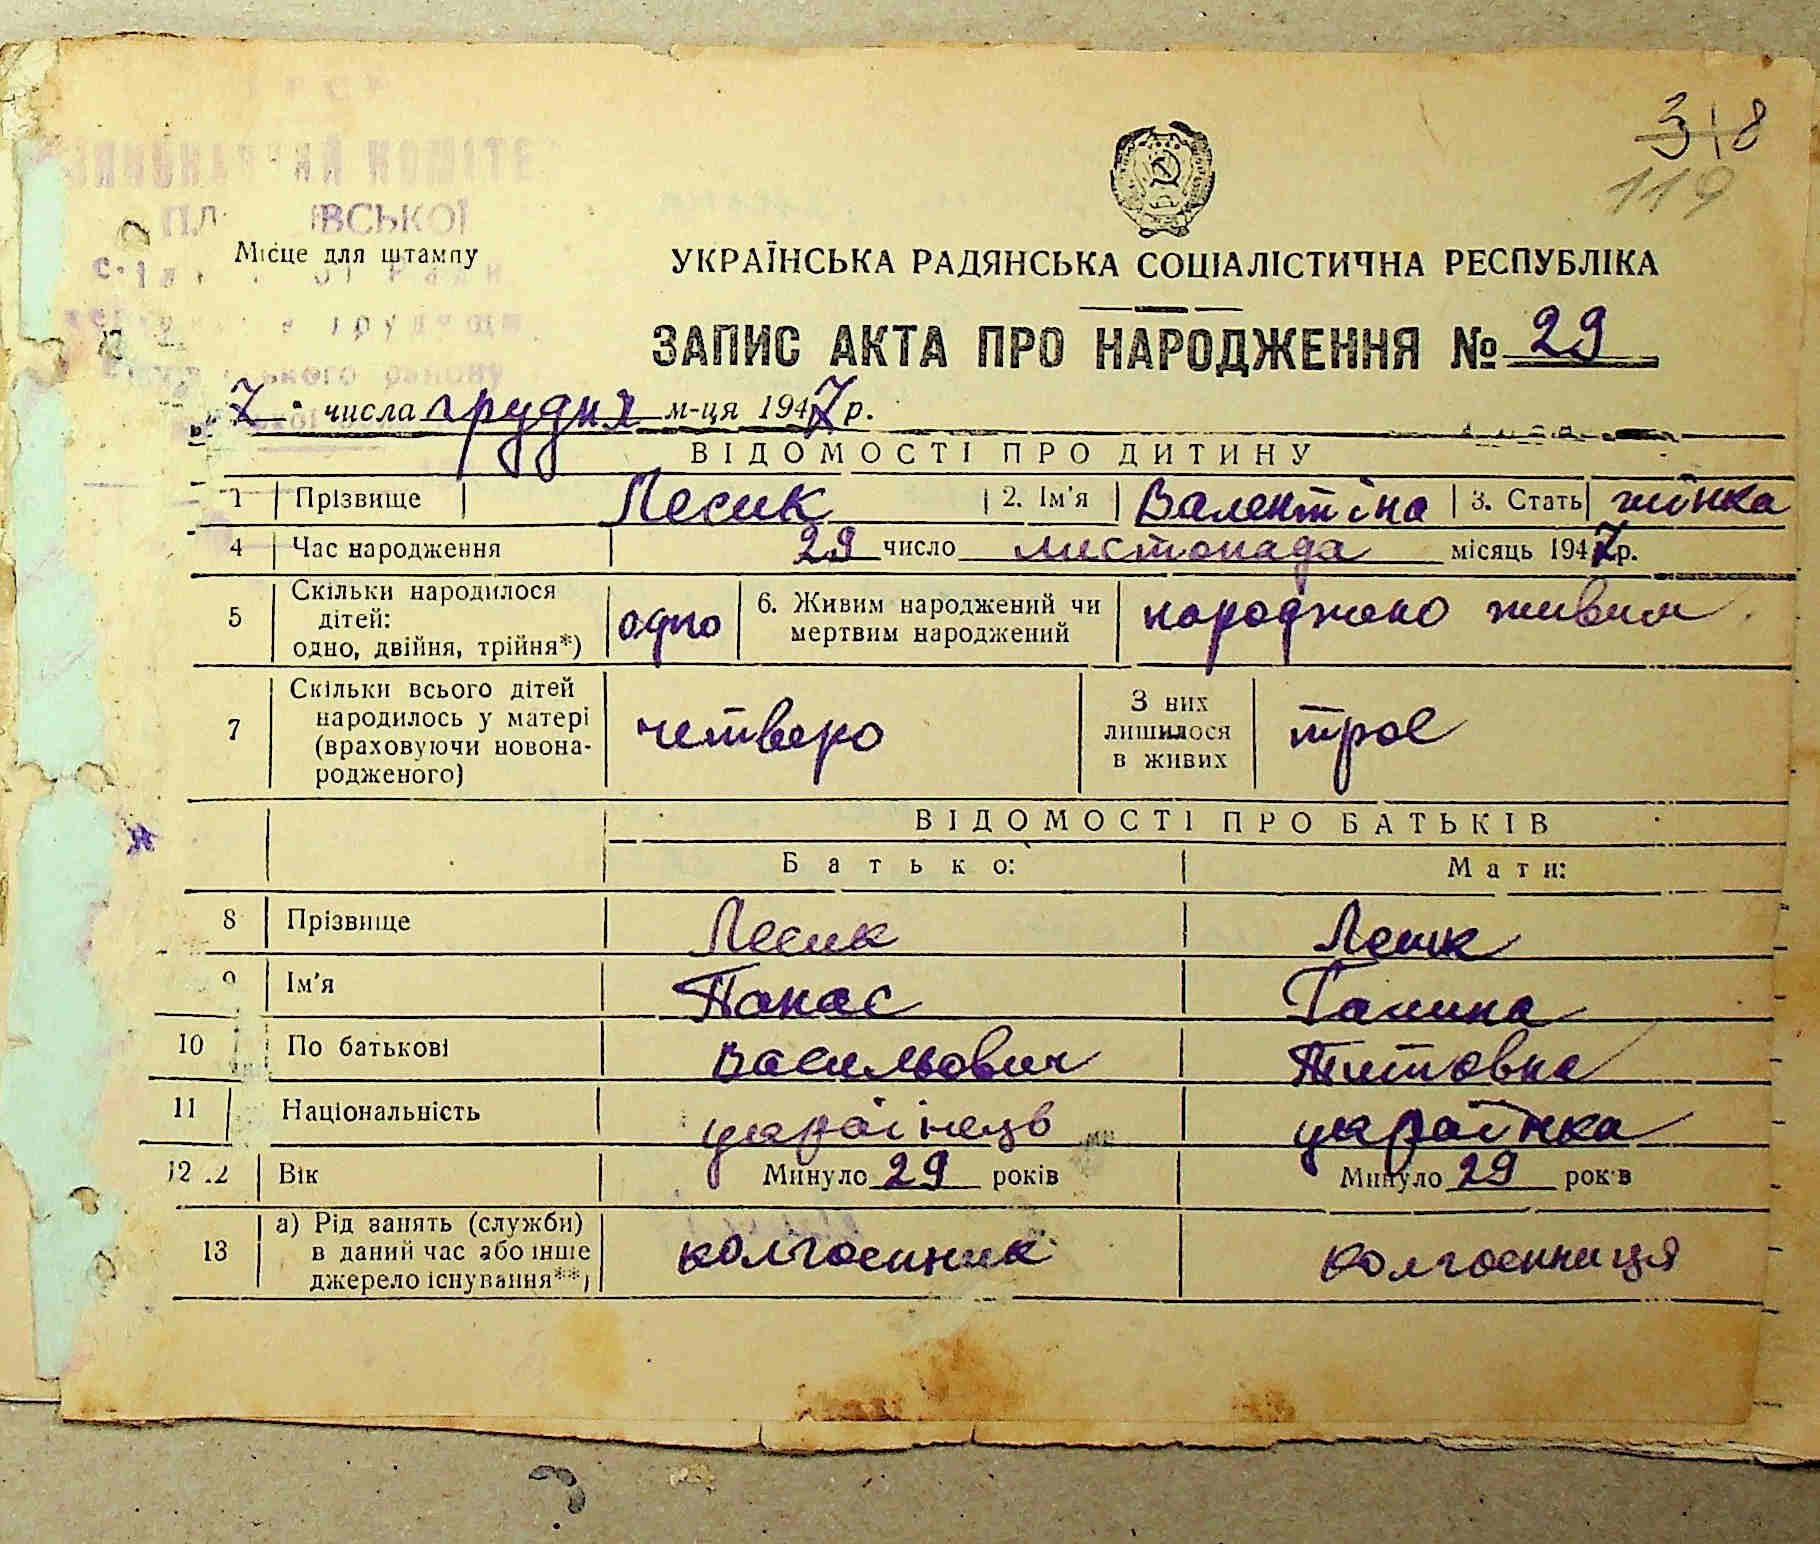 318
119
ВСЬКОЇ
Місце для штампу
УКРАЇНСЬКА РАДЯНСЬКА СОЦІАЛІСТИЧНА РЕСПУБЛІКА
ЗАПИС АКТА ПРО НАРОДЖЕННЯ № 29
7 числа грудня м-ця 1947 р.
ВІДОМОСТІ ПРО ДИТИНУ
1 Прізвище Лесик 2. Ім'я Валентіна 3. Стать жінка
4 Час народження 29 число листопада місяць 1947 р.
5 Скільки народилося дітей: одно, двійня, трійня*) одно 6. Живим народжений чи мертвим народжений народжено живим
7 Скільки всього дітей народилось у матері (враховуючи новонародженого) четверо З них лишилося в живих троє
ВІДОМОСТІ ПРО БАТЬКІВ
Батько: Мати:
8 Прізвище Лесик Лесик
9 Ім'я Панас Галина
10 По батькові Васильович Титовна
11 Національність українець українка
12 Вік Минуло 29 років Минуло 29 років
13 а) Рід занять (служби) в даний час або інше джерело існування**) колгоспник колгоспниця